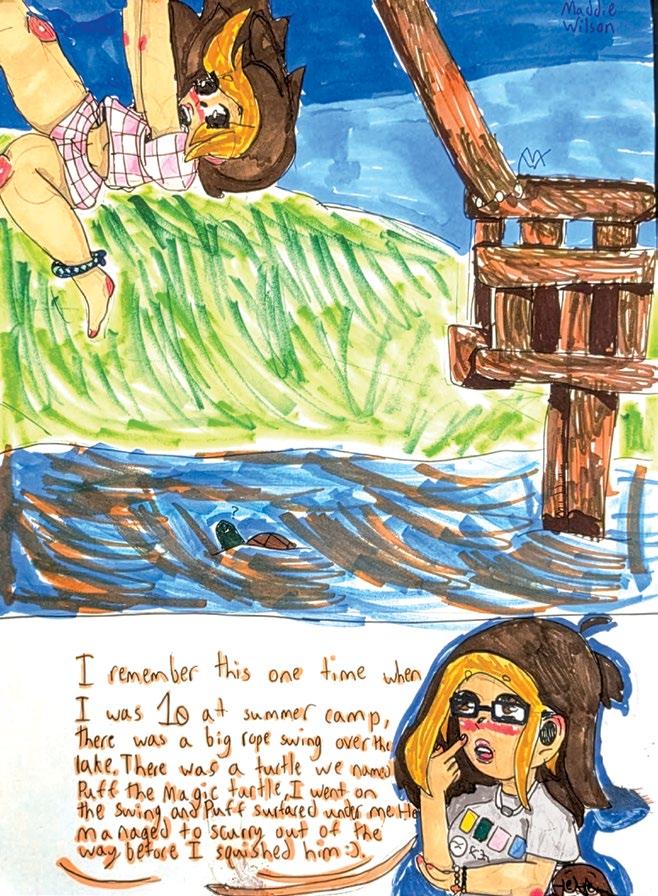 Maddie
Wilson
?
I remember this one time when
I was 10 at summer camp,
there was a big rope swing over the
lake. There was a turtle we named
Puff the Magic turtle. I went on
the swing and Puff surfaced under me. He
managed to scurry out of the
way before I squished him :).